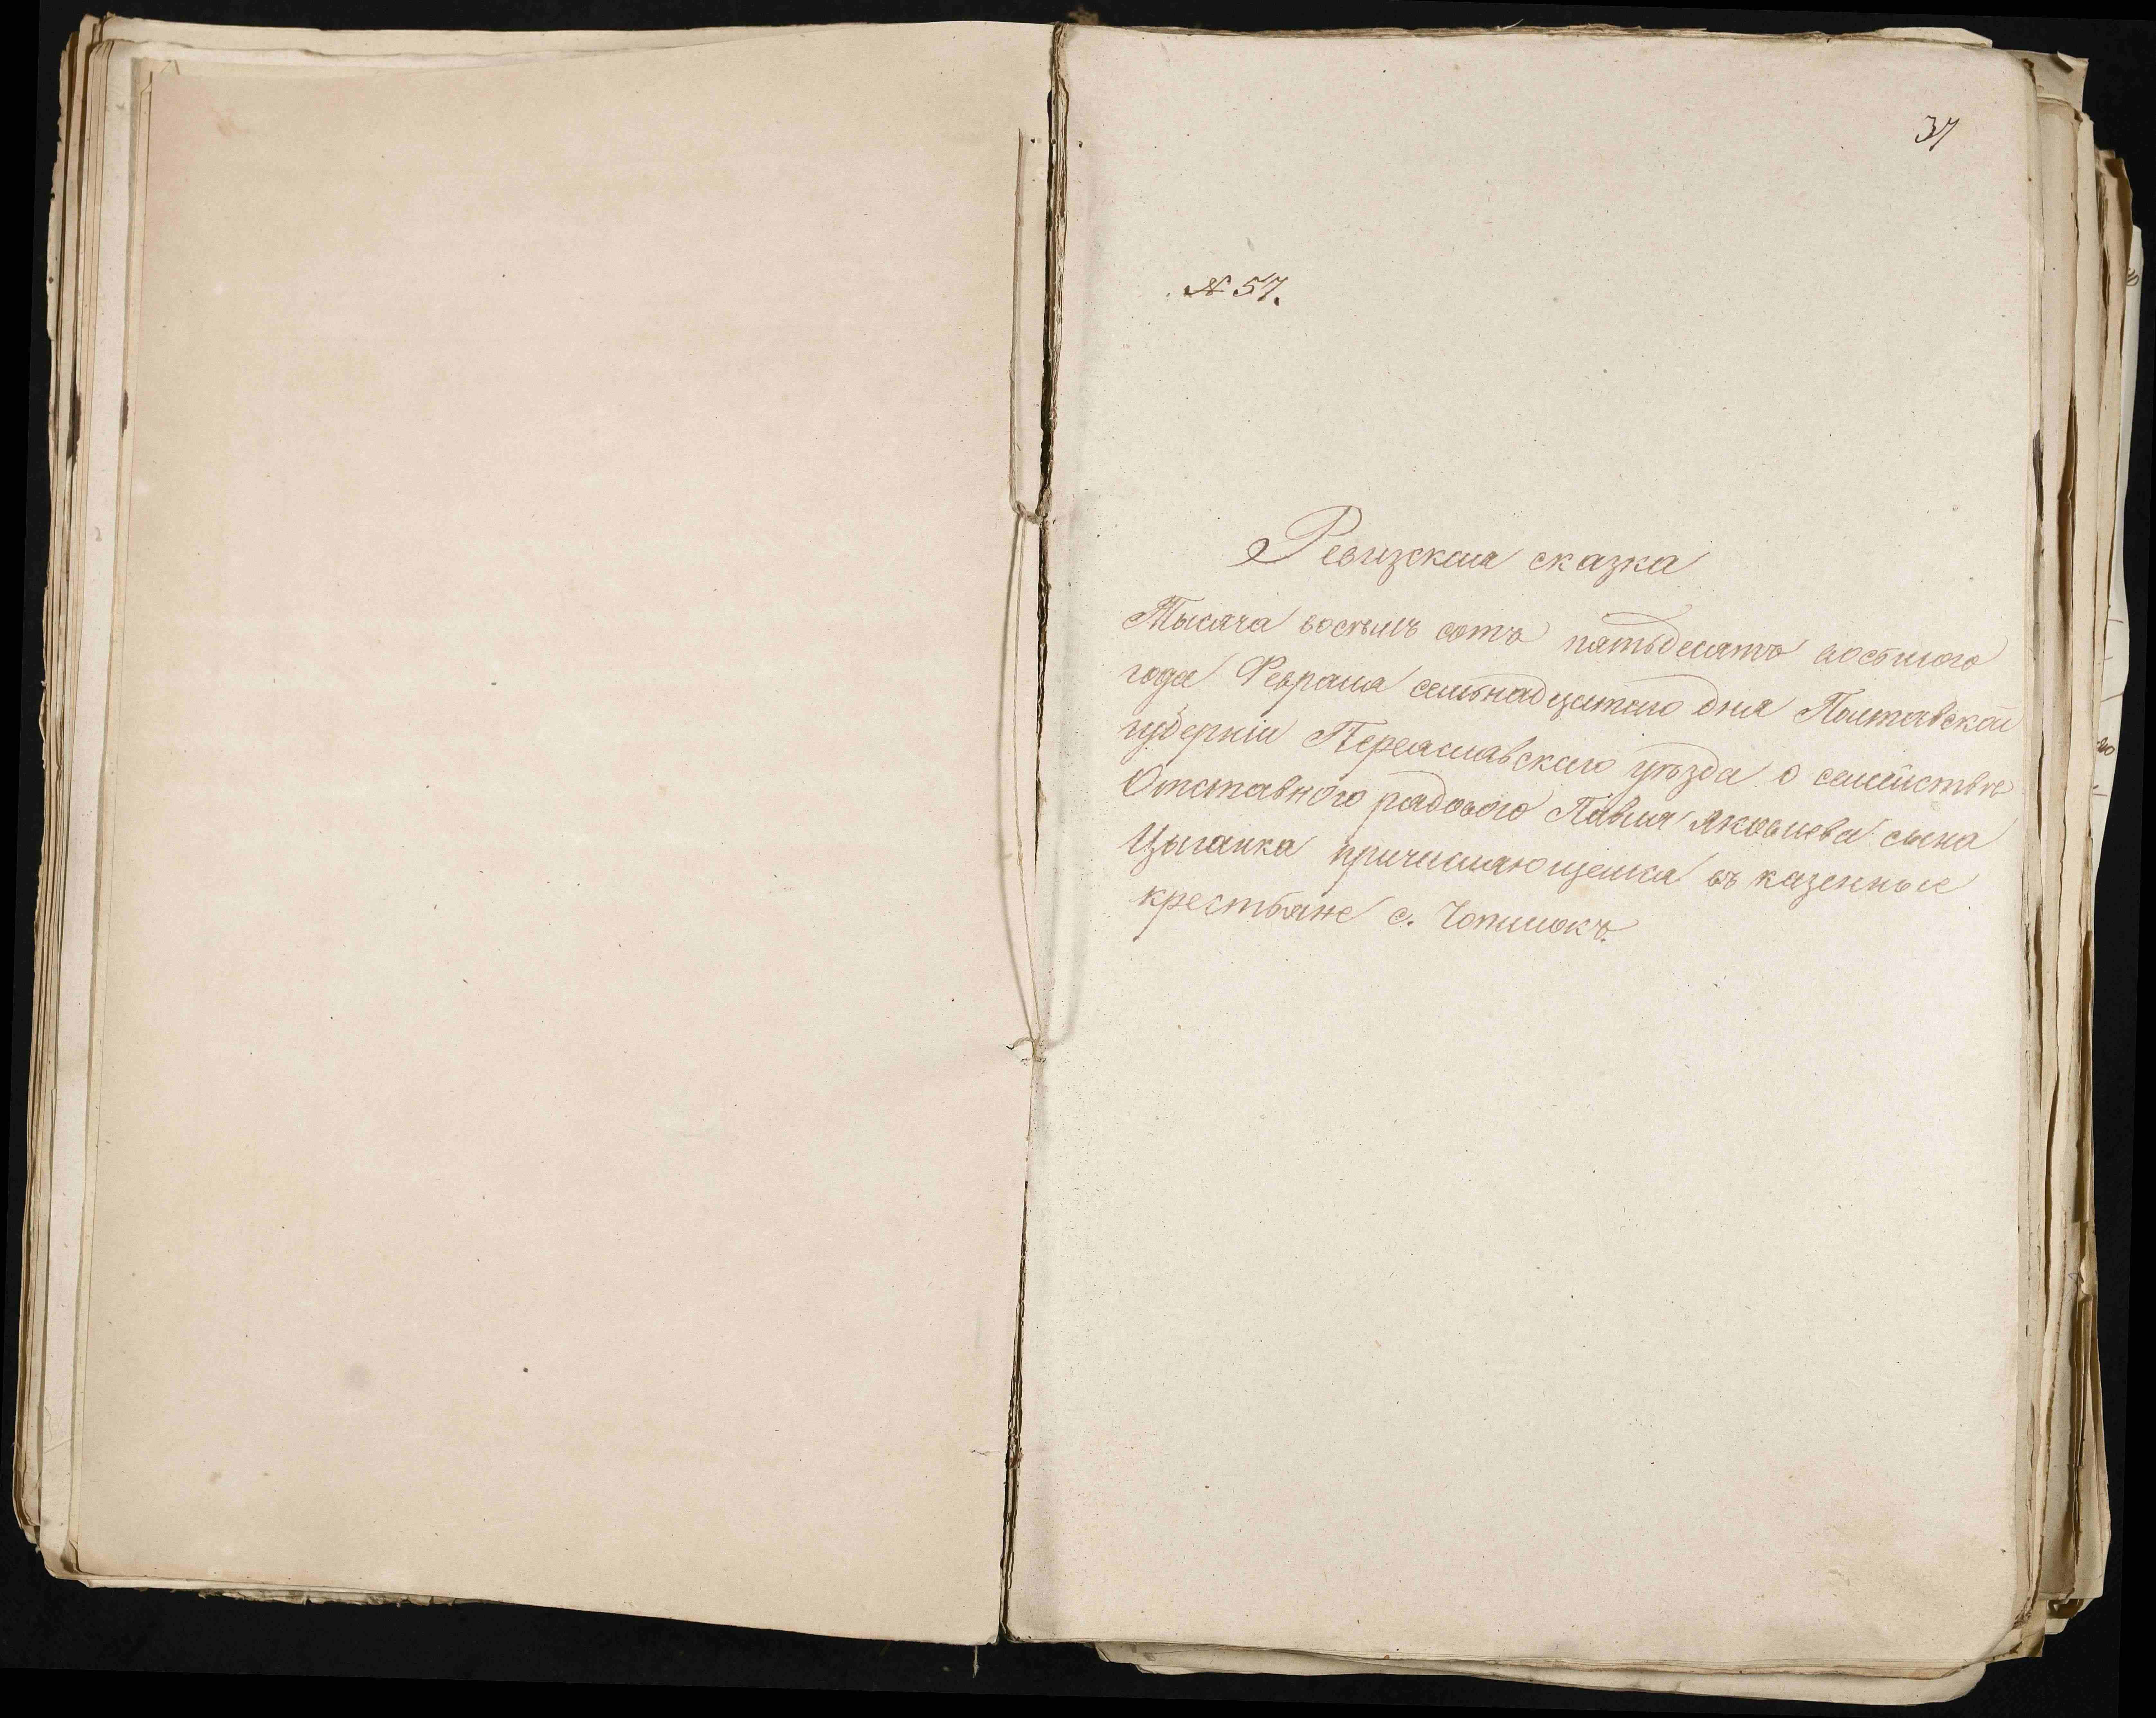 37
№ 57.
Ревизская сказка
Тысяча восемь сотъ пятьдесятъ восьмого
года Февраля семьнадцатого дня Полтавской
губерніи Переяславского уѣзда о семействѣ
Отставного рядового Павла Яковлева сына
Цыганка причисляющемся въ казенные
крестьяне с. Чопилокъ.